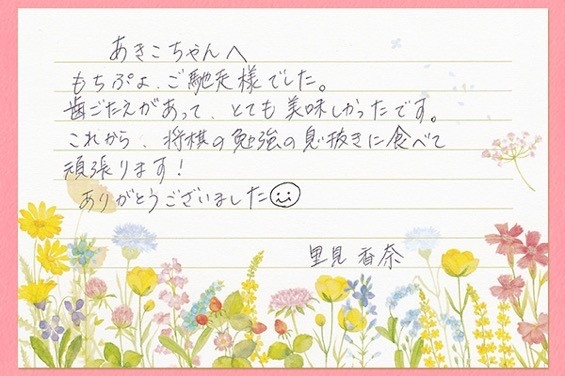 あきこちゃんへ
もちぷよ、ご馳走様でした。
歯ごたえがあって、とても美味しかったです。
これから、将棋の勉強の息抜きに食べて
頑張ります!
ありがとうございました
里見香奈